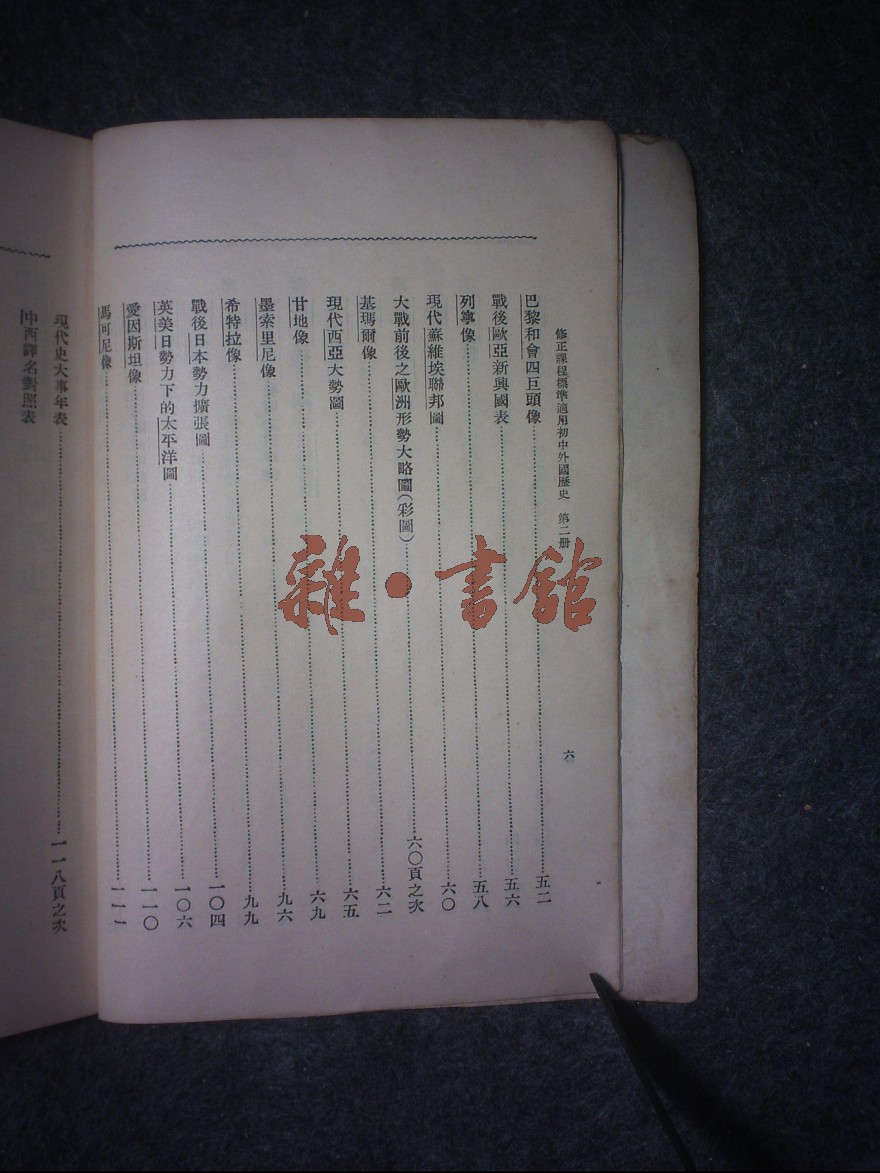 修正課程標準適用初中外國歷史 第二册
六
巴黎和會四巨頭像……五二
戰後歐亞新興國表……五六
列寧像……五八
現代蘇維埃聯邦圖……六〇
大戰前後之歐洲形勢大略圖(彩圖)……六〇頁之次
基瑪爾像……六二
現代西亞大勢圖……六五
甘地像……六九
墨索里尼像……九六
希特拉像……九九
戰後日本勢力擴張圖……一〇四
英美日勢力下的太平洋圖……一〇六
愛因斯坦像……一一〇
馬可尼像……一一一
現代史大事年表……一一八頁之次
中西譯名對照表
雜·書館